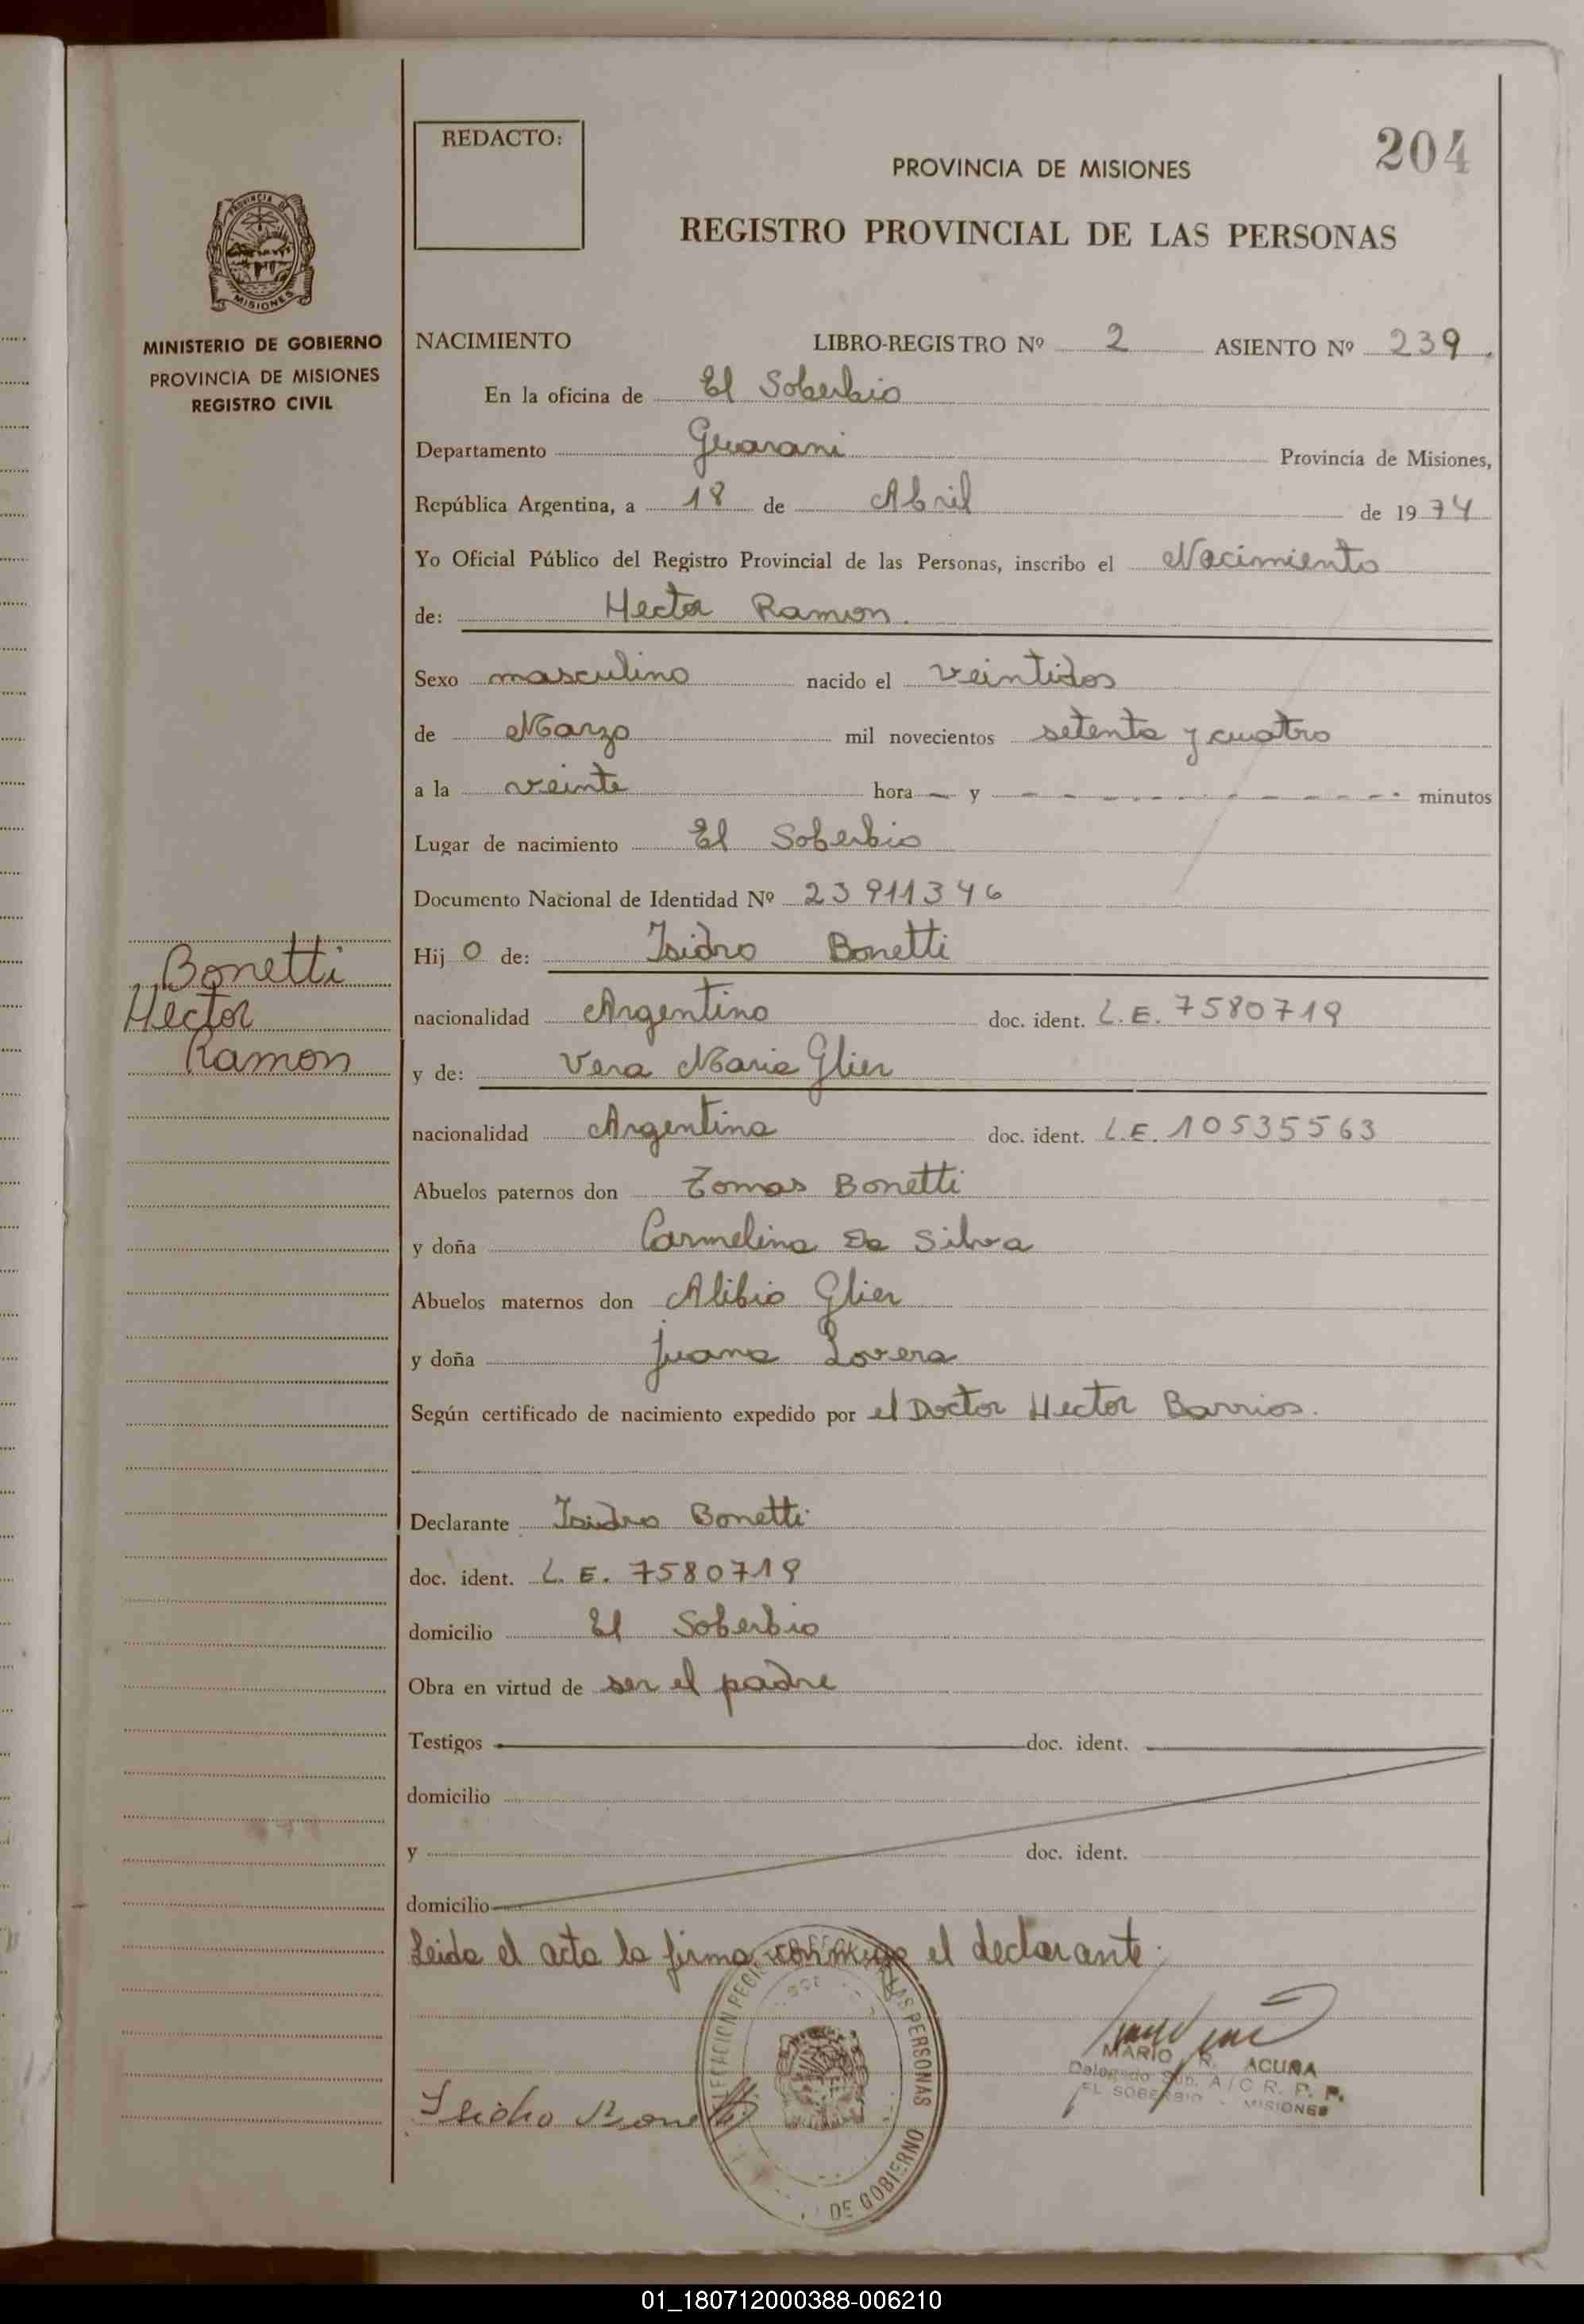 204
REDACTO:
PROVINCIA DE MISIONES
REGISTRO PROVINCIAL DE LAS PERSONAS
PROVINCIA DE
MISIONES
MINISTERIO DE GOBIERNO
PROVINCIA DE MISIONES
REGISTRO CIVIL
NACIMIENTO LIBRO-REGISTRO Nº 2 ASIENTO Nº 239
En la oficina de El Soberbio
Departamento Guarani Provincia de Misiones,
República Argentina, a 18 de Abril de 1974
Yo Oficial Público del Registro Provincial de las Personas, inscribo el Nacimiento
de: Hector Ramon.
Sexo masculino nacido el veintidos
de Marzo mil novecientos setenta y cuatro
a la veinte hora — y - - - - - - - - - - minutos
Lugar de nacimiento El Soberbio
Documento Nacional de Identidad Nº 23911346
Bonetti
Hector
Ramon
Hijo de: Isidro Bonetti
nacionalidad Argentino doc. ident. L.E. 7580719
y de: Vera Maria Glier
nacionalidad Argentina doc. ident. L.E. 10535563
Abuelos paternos don Tomas Bonetti
y doña Carmelina Da Silva
Abuelos maternos don Alibio Glier
y doña Juana Lovera
Según certificado de nacimiento expedido por el Doctor Hector Barrios.
Declarante Isidro Bonetti
doc. ident. L.E. 7580719
domicilio El Soberbio
Obra en virtud de ser el padre
Testigos doc. ident.
domicilio
y doc. ident.
domicilio
Leida el acta la firma conmigo el declarante:
LAS PERSONAS
DE GOBIERNO
MARIO R. ACUÑA
Delegado Sup. A/C R. P. P.
EL SOBERBIO - MISIONES
Isidro Bonetti
01_180712000388-006210